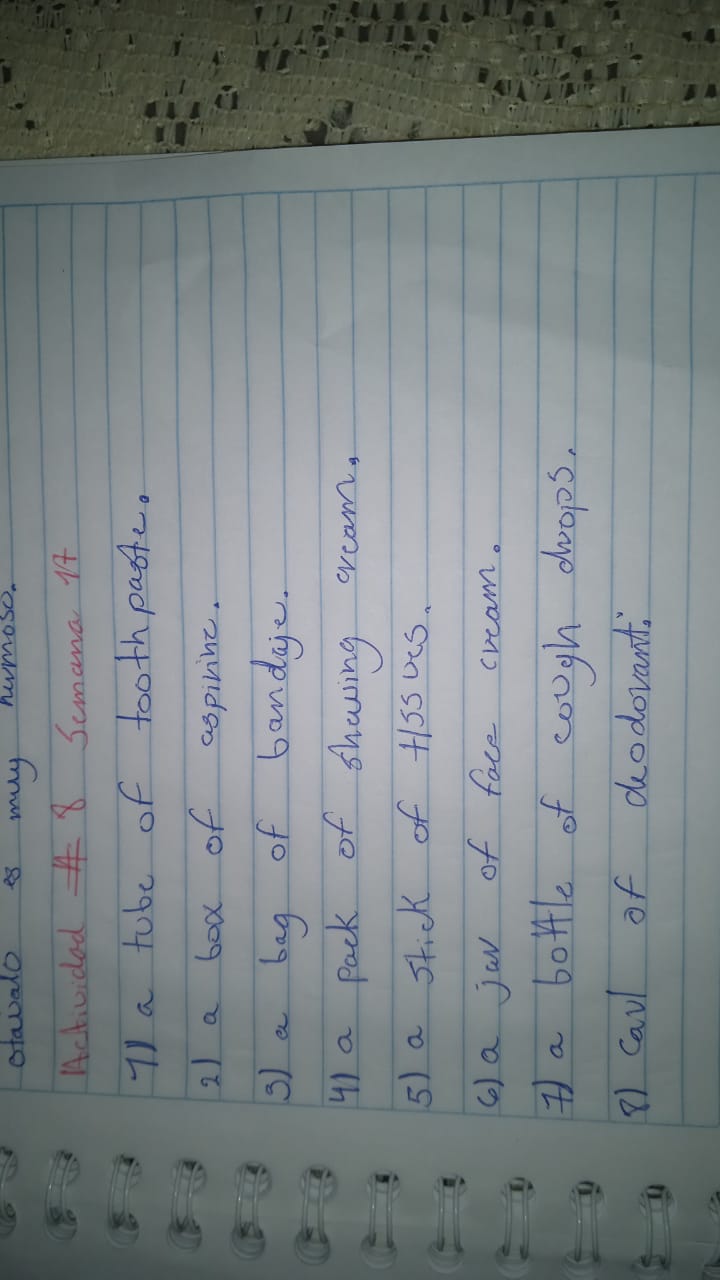 otavalo es muy hermoso.
Actividad # 8 Semana 17
1) a tube of toothpaste.
2) a box of aspirine.
3) a bag of bandaje.
4) a pack of shaving cream.
5) a stick of tissues.
6) a jar of face cream.
7) a bottle of cough drops.
8) of deodorant.